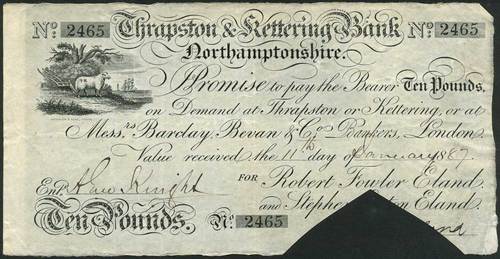 No: 2465 Thrapston & Kettering Bank No: 2465
Northamptonshire.
I Promise to pay the Bearer Ten Pounds
on Demand at Thrapston or Kettering, or at
Mess.rs Barclay, Bevan & Co Bankers, London
Value received the 11th day of January 1887
FOR Robert Fowler Eland
Entd Knight
and Stephen Eland.
Ten Pounds. No: 2465